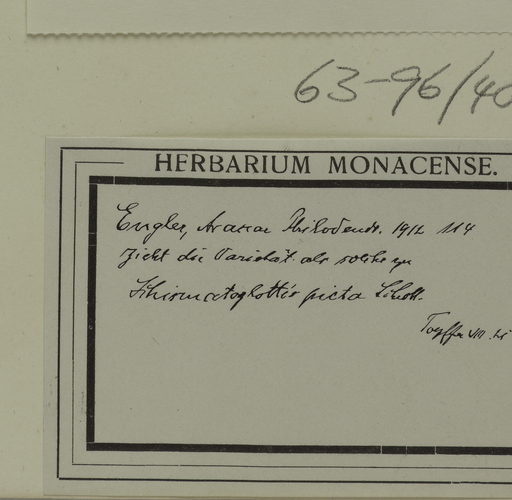 63-96/40
HERBARIUM MONACENSE.
Engler, Araceae Philodendr. 1912 114
zieht die Varietät als solche zu
Schismatoglottis picta Schott.